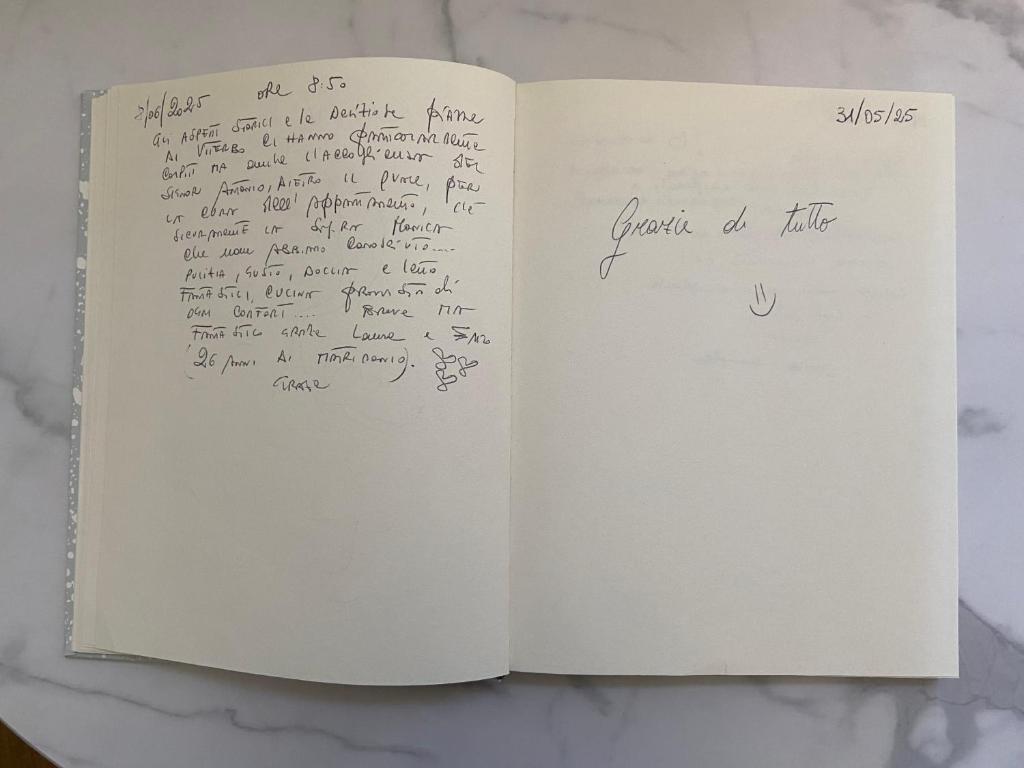 8/06/2025 ore 8:50
Gli ASPETTI STORICI e le
Di VITERBO CI HANNO PARTICOLARMENTE
COLPITI MA anche l'ACCOGLIENZA DEL
SIGNOR ANTONIO, DIETRO IL QUALE, PER
LA CURA DELL'APPARTAMENTO, C'È
SICURAMENTE LA SIG.RA MONICA
che non ABBIAMO CONOSCIUTO....
PULIZIA, GUSTO, DOCCIA e letto
FANTASTICI, CUCINA PROVVISTA di
OGNI CONFORT.... BREVE MA
FANTASTICO GRAZIE Laura e
(26 ANNI DI MATRIMONIO).
GRAZIE
31/05/25
Grazie di tutto